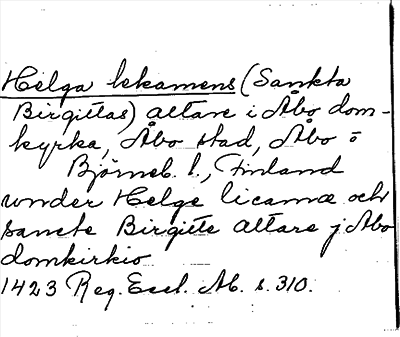 Helga lekamens (Sankta
Birgittas) altare i Åbo dom-
kyrka, Åbo stad, Åbo o
Björneb. l., Finland
under Helge licamæ och
sancte Birgitte altare j Abo
domkirkio
1423 Reg. Eccl. Ab. s. 310.